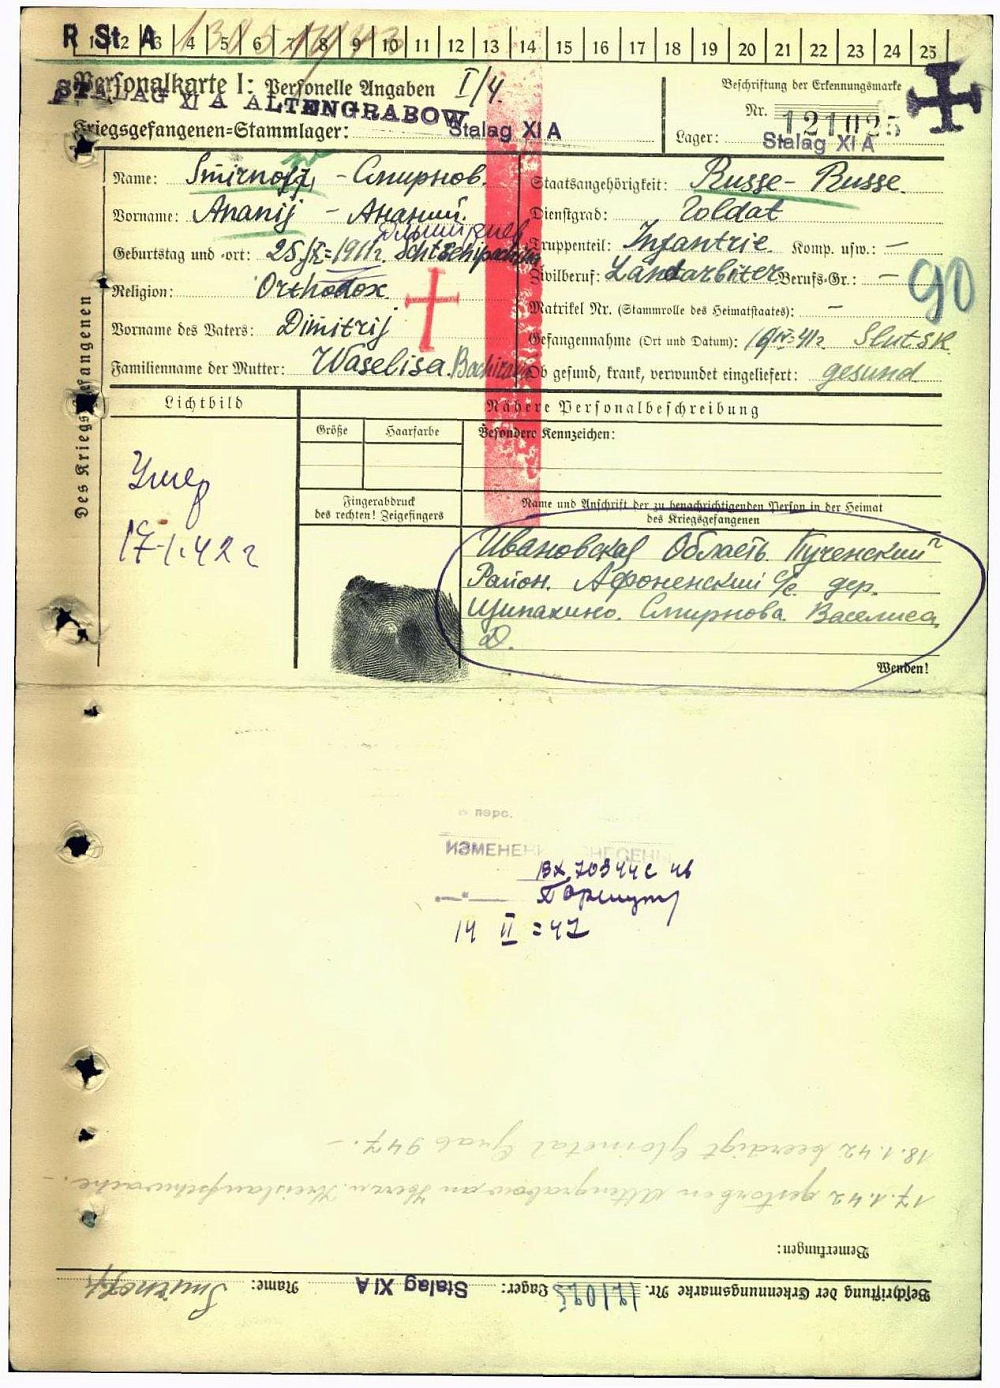 R St A
1 2 3 4 5 6 7 8 9 10 11 12 13 14 15 16 17 18 19 20 21 22 23 24 25
Personalkarte I: Personelle Angaben I/4.
STALAG XI A ALTENGRABOW
Kriegsgefangenen=Stammlager: Stalag XI A
Beschriftung der Erkennungsmarke
Nr. 121025
Lager: Stalag XI A
Des Kriegsgefangenen
Name: Smirnoff - Смирнов.
Vorname: Ananij - Ананий.
Geburtstag und -ort: 1911г.
Religion: Orthodox.
Vorname des Vaters: Dimitrij
Familienname der Mutter: Waselisa.
Staatsangehörigkeit: Russe - Russe.
Dienstgrad: Soldat
Truppenteil: Infantrie Komp. usw.: —
Zivilberuf: Landarbiter Berufs-Gr.: —
90
Matrikel Nr. (Stammrolle des Heimatstaates): —
Gefangennahme (Ort und Datum): Slutsk
Ob gesund, krank, verwundet eingeliefert: gesund
Lichtbild
Nähere Personalbeschreibung
Größe Haarfarbe Besondere Kennzeichen:
Умер
17-1.42г
Fingerabdruck
des rechten! Zeigefingers
Name und Anschrift der zu benachrichtigenden Person in der Heimat
des Kriegsgefangenen
Ивановская Область. Пученский
Район. Афоненский с/с. дер.
Щипахино. Смирнова Васелиса.
Д.
Wenden!
в перс.
ИЗМЕНЕНИ ВНЕСЕНЫ
вх. 70344с
14 II =47
18.1.42 beerdigt Grab 947. —
17.1.42 gestorben Altengrabow an Herz u. Kreislaufschwäche. —
Bemerkungen:
Beschriftung der Erkennungsmarke Nr. 121025 Lager: Stalag XI A Name: Smirnoff